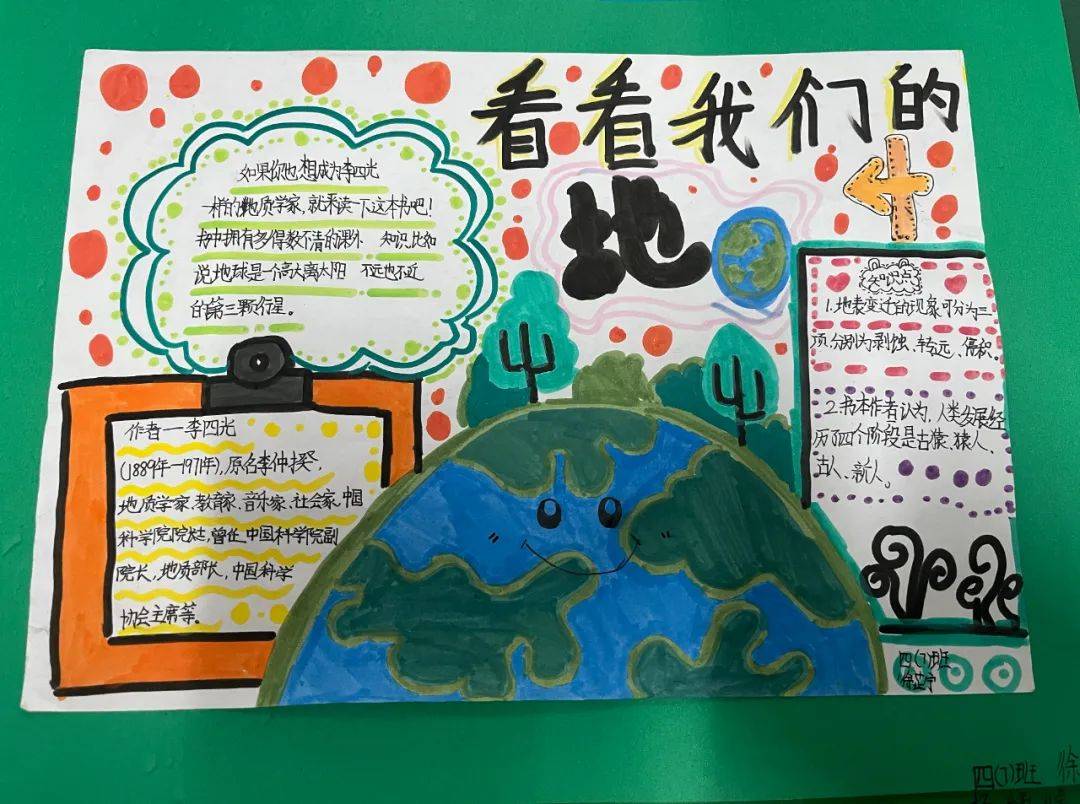 看看我们的
地
如果你也想成为李四光
一样的地质学家,就来读一下这本书吧!
书中拥有多得数不清的课外 知识,比如
说地球是一个离太离太阳 不远也不近
的第三颗行星。
知识点
1.地表变迁的现象可分为三
项,分别为剥蚀、转远、储积。
2.书本作者认为,人类发展经
历了四个阶段是古猿、猿人、
古人、新人。
作者——李四光
(1889年—1971年),原名李仲揆,
地质学家、教育家、音乐家、社会家、中国
科学院院灶,曾任中国科学院副
院长,地质部长,中国科学
协会主席等。
四(7)班
徐芷宁
四(7)班 徐